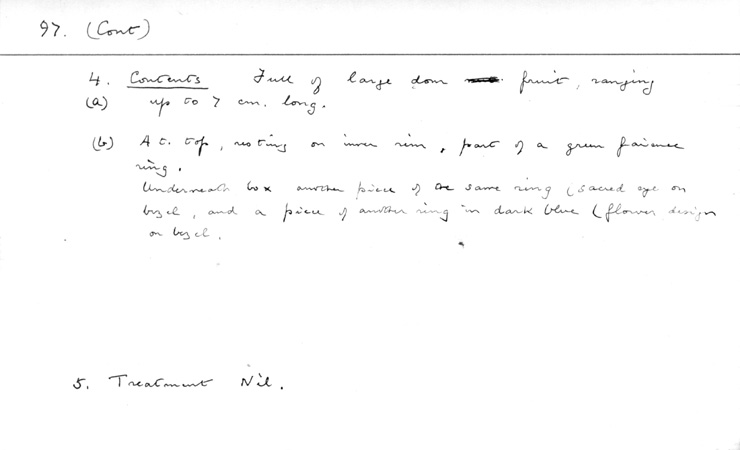 97. (Cont)
4. Contents Full of large dom fruit, ranging
(a) up to 7 cm. long.
(b) At. top, resting on inner rim, part of a green faience
ring.
Underneath box another piece of the same ring (sacred eye on
bezel, and a piece of another ring in dark blue (flower design
on bezel.
5. Treatment Nil.